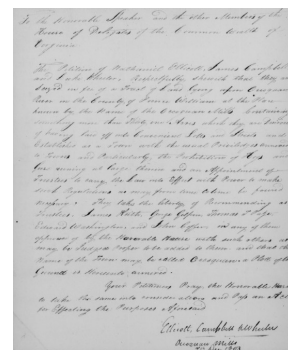 To the Honorable Speaker and the other Members of the
House of Delegates of the Common Wealth of
Virginia
The Petition of Nathaniel Ellicott, James Campbell
and Luke Wheeler, Respectfully sheweth that they are
of a Tract of Land lying upon Occoquan
River in the County of Prince William at the
known by the Name of the Occoquan Mills, Containing
of having laid off into Convenient Lotts and Streets and
Established as a Town with the usual Priviledges
to Towns and Particularly, the Prohibition of Hogs and
from running at large therein and an Appointment of
Trustees to carry the Law into Effect with Power to make
such Regulations as may from time to time be found
They take the liberty of Recommending as
Trustees, James Smith, George Gilpin, Thomas
Edward Washington, and John or any three
of them if by the Honorable House with such others as
may be Judged proper to be added to them and that the
Name of the Town may be called Occoquan a Platt of the
Ground is herewith annexed.
Your Petitioners Pray the Honorable House
to take the same into consideration, and Pass an Act
for Effecting the Purposes
Ellicott Campbell & Wheeler
Occoquan Mills